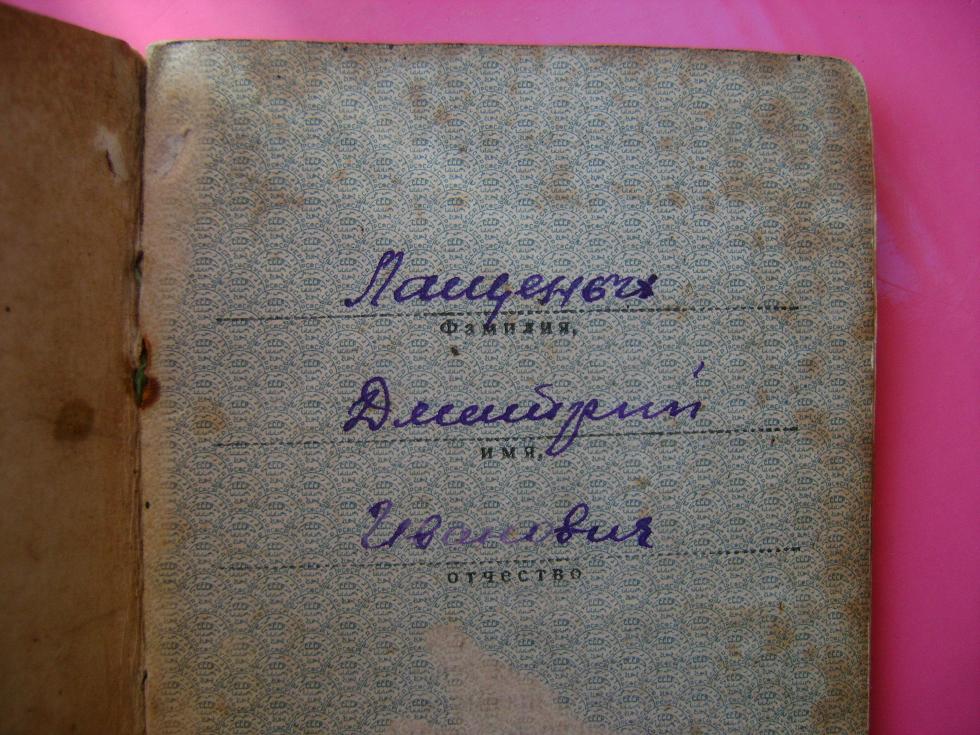 Лащеных
Фамилия,
Дмитрий
имя,
Иванович
отчество